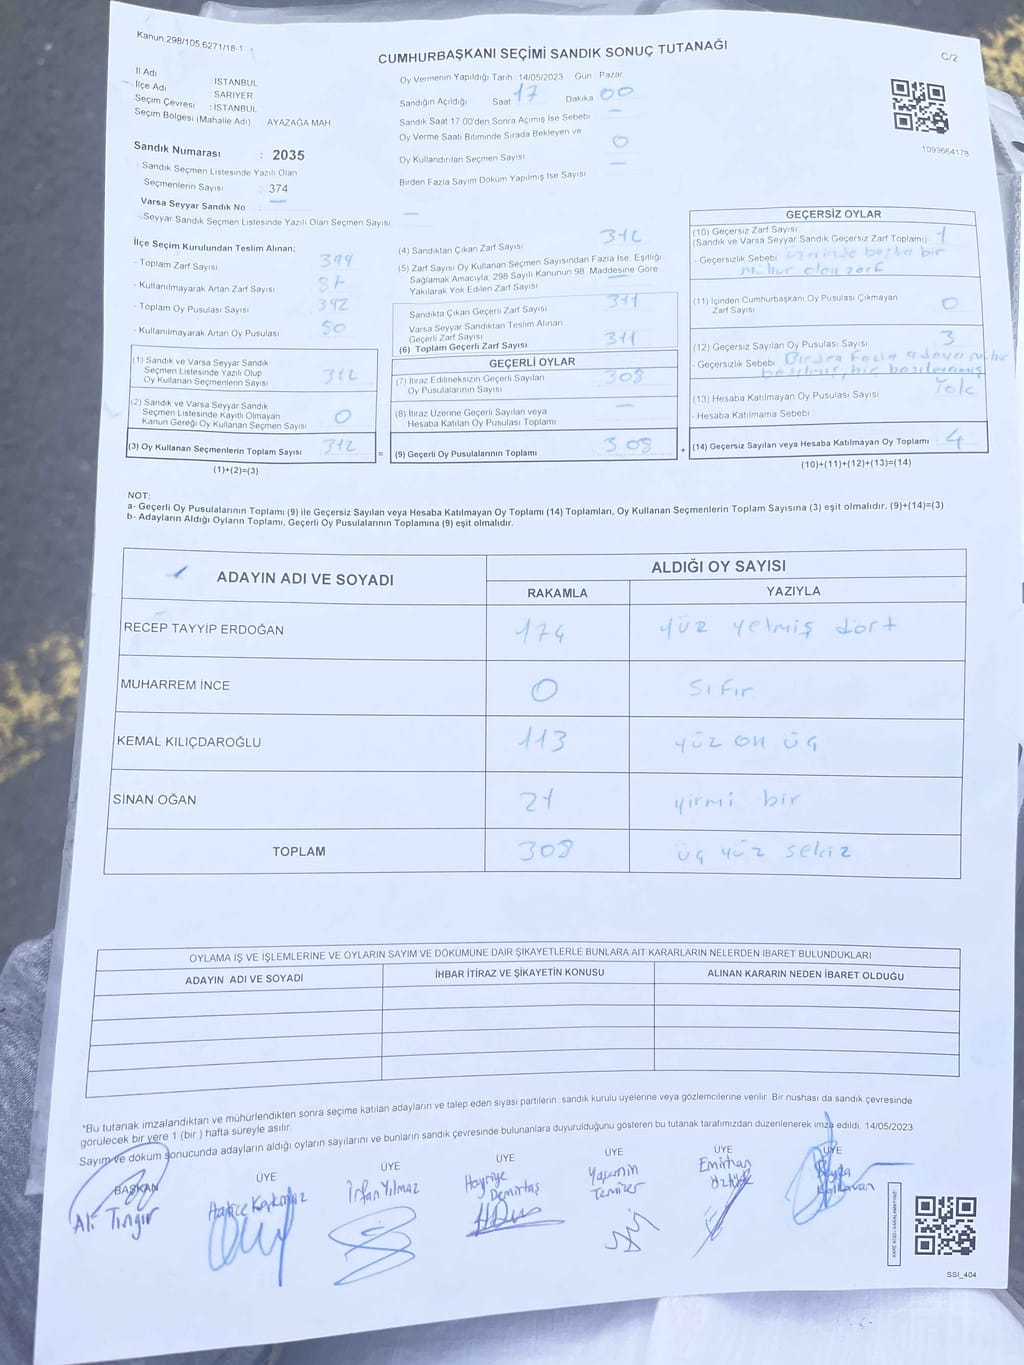 Kanun:298/105 6271/18-1
CUMHURBAŞKANI SEÇİMİ SANDIK SONUÇ TUTANAĞI
C/2
İl Adı İSTANBUL
İlçe Adı SARIYER
Seçim Çevresi : İSTANBUL
Seçim Bölgesi (Mahalle Adı) AYAZAĞA MAH.
Oy Vermenin Yapıldığı Tarih 14/05/2023 Gün Pazar
Sandığın Açıldığı Saat 17 Dakika 00
Sandık Saat 17 00'den Sonra Açımış İse Sebebi —
Oy Verme Saati Bitiminde Sırada Bekleyen ve
Oy Kullandırılan Seçmen Sayısı 0
Birden Fazla Sayım Döküm Yapılmış İse Sayısı —
1093664178
Sandık Numarası : 2035
- Sandık Seçmen Listesinde Yazılı Olan
Seçmenlerin Sayısı : 374
Varsa Seyyar Sandık No —
- Seyyar Sandık Seçmen Listesinde Yazılı Olan Seçmen Sayısı —
İlçe Seçim Kurulundan Teslim Alınan;
- Toplam Zarf Sayısı
- Kullanılmayarak Artan Zarf Sayısı
- Toplam Oy Pusulası Sayısı
- Kullanılmayarak Artan Oy Pusulası
(1) Sandık ve Varsa Seyyar Sandık
Seçmen Listesinde Yazılı Olup
Oy Kullanan Seçmenlerin Sayısı 312
(2) Sandık ve Varsa Seyyar Sandık
Seçmen Listesinde Kayıtlı Olmayan
Kanun Gereği Oy Kullanan Seçmen Sayısı 0
(3) Oy Kullanan Seçmenlerin Toplam Sayısı 312
(1)+(2)=(3)
=
(4) Sandıktan Çıkan Zarf Sayısı 312
(5) Zarf Sayısı Oy Kullanan Seçmen Sayısından Fazla İse, Eşitliği
Sağlamak Amacıyla, 298 Sayılı Kanunun 98. Maddesine Göre
Yakılarak Yok Edilen Zarf Sayısı —
Sandıkta Çıkan Geçerli Zarf Sayısı 311
Varsa Seyyar Sandıktan Teslim Alınan
Geçerli Zarf Sayısı
(6) Toplam Geçerli Zarf Sayısı 311
GEÇERLİ OYLAR
(7) İtiraz Edilmeksizin Geçerli Sayılan
Oy Pusulalarının Sayısı 308
(8) İtiraz Üzerine Geçerli Sayılan veya
Hesaba Katılan Oy Pusulası Toplamı —
(9) Geçerli Oy Pusulalarının Toplamı 308
+
GEÇERSİZ OYLAR
(10) Geçersiz Zarf Sayısı
(Sandık ve Varsa Seyyar Sandık Geçersiz Zarf Toplamı) 1
- Geçersizlik Sebebi üzerinde başka bir
mühür olan zarf
(11) İçinden Cumhurbaşkanı Oy Pusulası Çıkmayan
Zarf Sayısı 0
(12) Geçersiz Sayılan Oy Pusulası Sayısı 3
- Geçersizlik Sebebi Birden Fazla adaya mühür
basılmış, hiç basılmamış
(13) Hesaba Katılmayan Oy Pusulası Sayısı Yok
- Hesaba Katılmama Sebebi
(14) Geçersiz Sayılan veya Hesaba Katılmayan Oy Toplamı 4
(10)+(11)+(12)+(13)=(14)
NOT:
a- Geçerli Oy Pusulalarının Toplamı (9) ile Geçersiz Sayılan veya Hesaba Katılmayan Oy Toplamı (14) Toplamları, Oy Kullanan Seçmenlerin Toplam Sayısına (3) eşit olmalıdır. (9)+(14)=(3)
b- Adayların Aldığı Oyların Toplamı, Geçerli Oy Pusulalarının Toplamına (9) eşit olmalıdır.
ADAYIN ADI VE SOYADI
ALDIĞI OY SAYISI
RAKAMLA YAZIYLA
RECEP TAYYİP ERDOĞAN 174 yüz yetmiş dört
MUHARREM İNCE 0 Sıfır
KEMAL KILIÇDAROĞLU 113 yüz on üç
SİNAN OĞAN 21 yirmi bir
TOPLAM 308 üç yüz sekiz
OYLAMA İŞ VE İŞLEMLERİNE VE OYLARIN SAYIM VE DÖKÜMÜNE DAİR ŞİKAYETLERLE BUNLARA AİT KARARLARIN NELERDEN İBARET BULUNDUKLARI
ADAYIN ADI VE SOYADI İHBAR İTİRAZ VE ŞİKAYETİN KONUSU ALINAN KARARIN NEDEN İBARET OLDUĞU
*Bu tutanak imzalandıktan ve mühürlendikten sonra seçime katılan adayların ve talep eden siyasi partilerin sandık kurulu üyelerine veya gözlemcilerine verilir. Bir nüshası da sandık çevresinde
görülecek bir yere 1 (bir ) hafta süreyle asılır.
Sayım ve döküm sonucunda adayların aldığı oyların sayılarını ve bunların sandık çevresinde bulunanlara duyurulduğunu gösteren bu tutanak tarafımızdan düzenlenerek imza edildi. 14/05/2023
BAŞKAN ÜYE ÜYE ÜYE ÜYE ÜYE ÜYE
Ali Tingir
Hatice Korkmaz
İrfan Yılmaz
Hayriye
Demirtaş
Yasemin
Temizer
Emirhan
SSİ_404